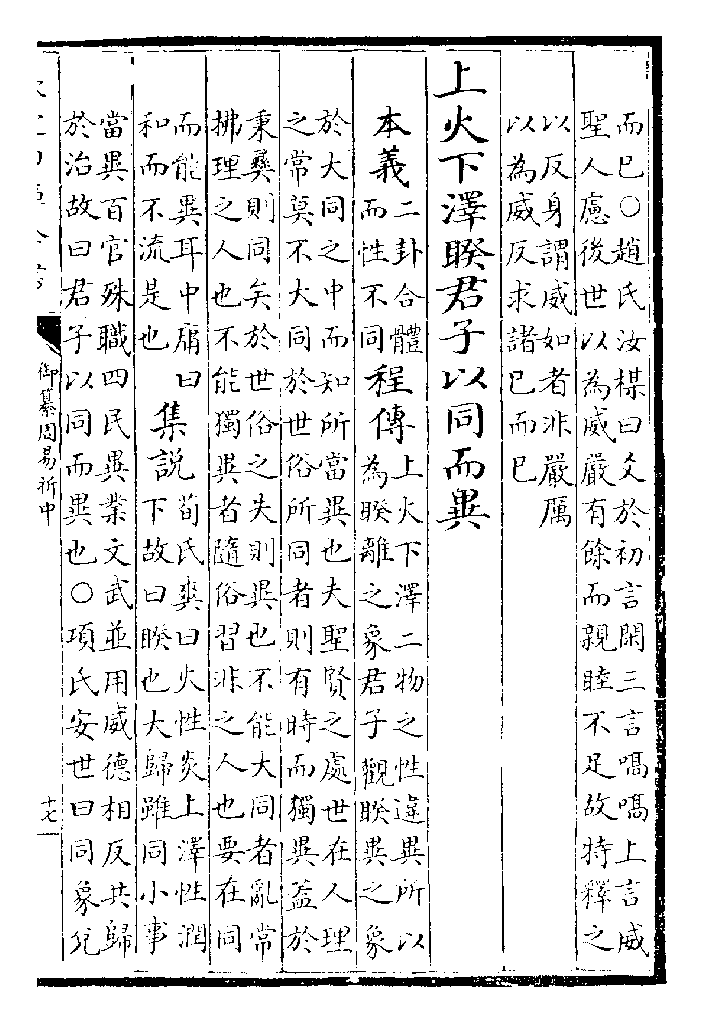 而已○趙氏汝楳曰爻於初言閑三言嗃嗃上言威
聖人慮後世以為威嚴有餘而親睦不足故特釋之
以反身謂威如者非嚴厲
以為威反求諸已而已
上火下澤睽君子以同而異
本義
二卦合體
而性不同
程傳
上火下澤二物之性違異所以
為睽離之象君子觀睽異之象
於大同之中而知所當異也夫聖賢之處世在人理
之常莫不大同於世俗所同者則有時而獨異蓋於
秉彝則同矣於世俗之失則異也不能大同者亂常
拂理之人也不能獨異者隨俗習非之人也要在同
而能異耳中庸曰
和而不流是也
集說
荀氏爽曰火性炎上澤性潤
下故曰睽也大歸雖同小事
當異百官殊職四民異業文武並用威德相反共歸
於治故曰君子以同而異也○項氏安世曰同象兌
御纂周易折中
十七